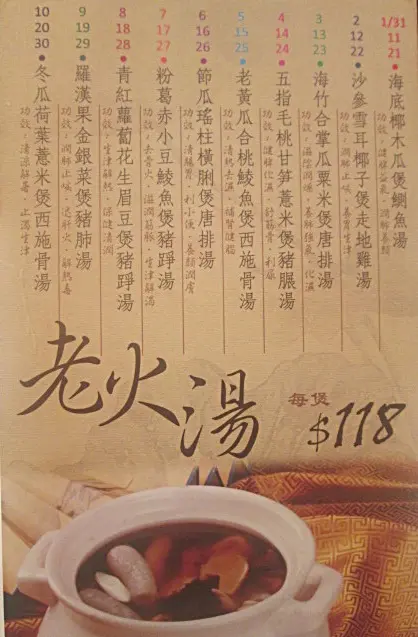 1/31
11
21
海底椰木瓜煲鯛魚湯
功效：健脾益氣、潤肺養顏
2
12
22
沙參雪耳椰子煲走地雞湯
功效：潤肺止咳、養胃生津
3
13
23
海竹合掌瓜粟米煲唐排湯
功效：滋陰潤燥、養肺強氣、化濕
4
14
24
五指毛桃甘筍薏米煲豬脤湯
功效：健脾化濕、舒筋骨、利尿
5
15
25
老黃瓜合桃鯪魚煲西施骨湯
功效：清熱去濕、補腎健腦
6
16
26
節瓜瑤柱橫脷煲唐排湯
功效：清腸胃、利小便、養顏潤膚
7
17
27
粉葛赤小豆鯪魚煲豬踭湯
功效：去骨火、滋潤筋脈、生津解渴
8
18
28
青紅蘿蔔花生眉豆煲豬踭湯
功效：生津解熱、保健清潤
9
19
29
羅漢果金銀菜煲豬肺湯
功效：潤肺止咳、退肝火、解熱毒
10
20
30
冬瓜荷葉薏米煲西施骨湯
功效：清涼解暑、止渴生津
老火湯
每煲
$118